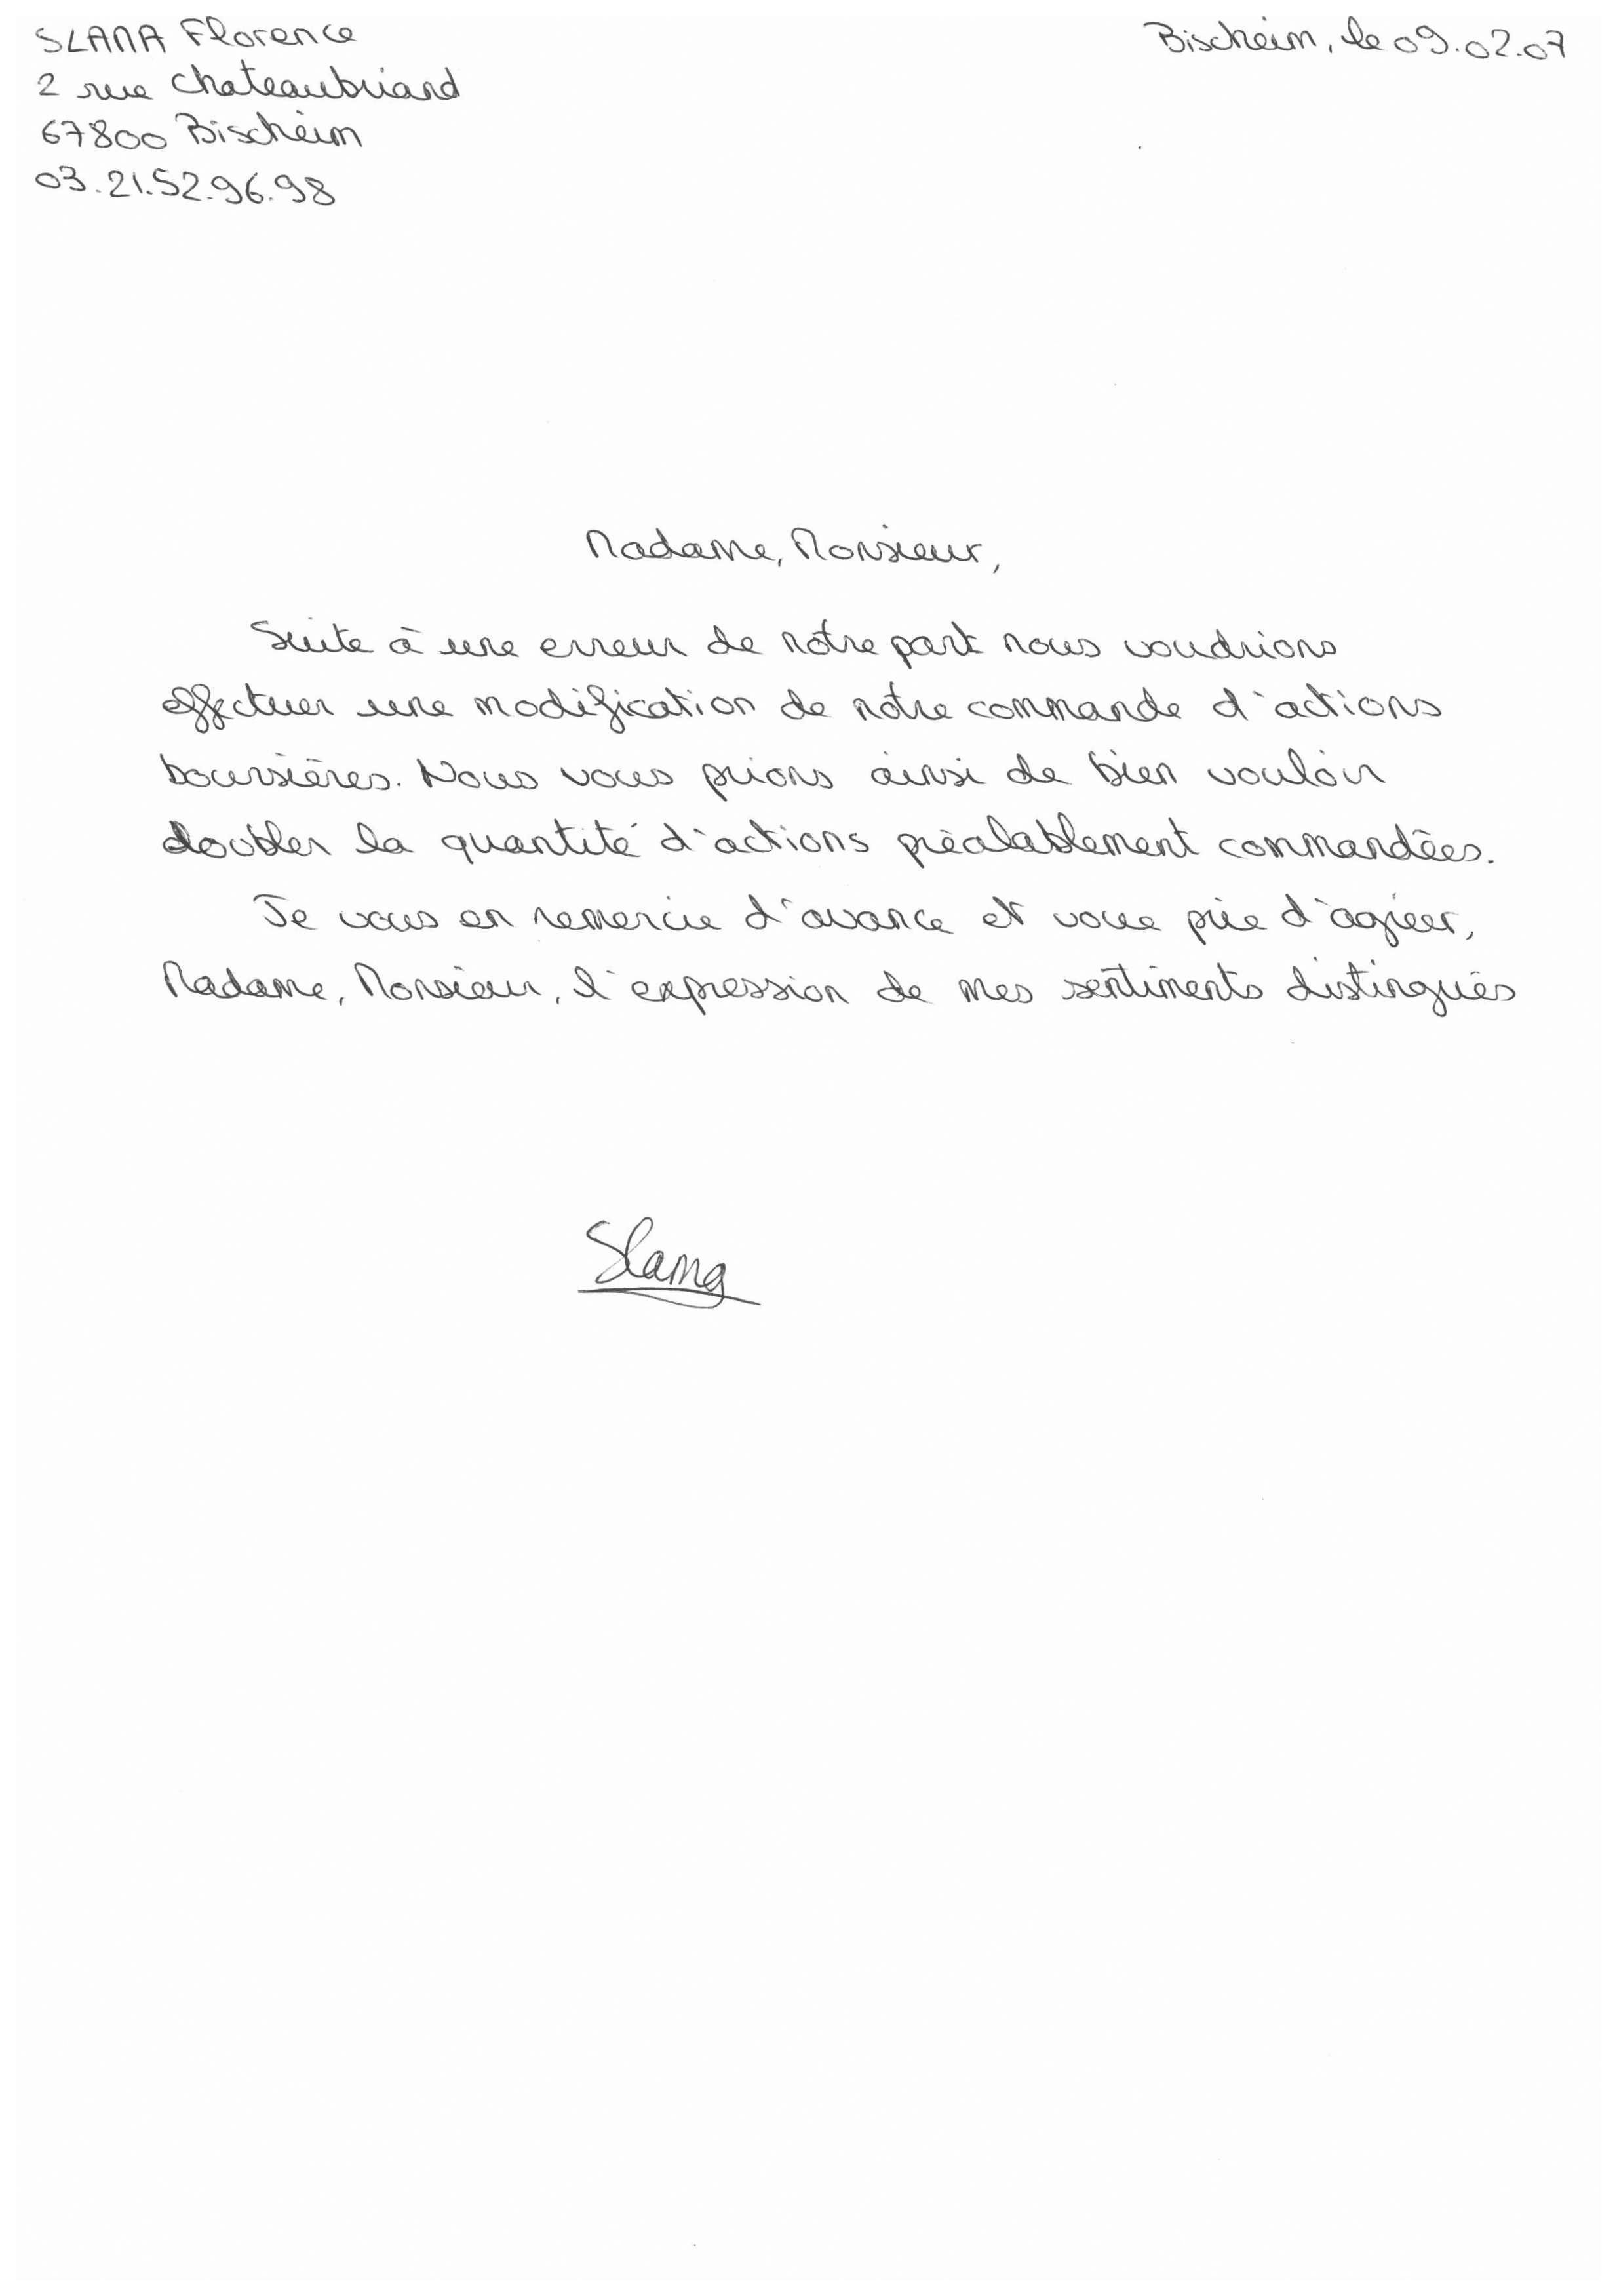 SLAMA Florence
2 rue Chateaubriand
67800 Bischeim
03.21.52.96.98
Bischeim, le 09.02.07
Madame, Monsieur,
Suite à une erreur de notre part nous voudrions
effectuer une modification de notre commande d'actions
boursières. Nous vous prions ainsi de bien vouloir
doubler la quantité d'actions préalablement commandées.
Je vous en remercie d'avance et vous prie d'agréer,
Madame, Monsieur, l'expression de mes sentiments distingués
Slama